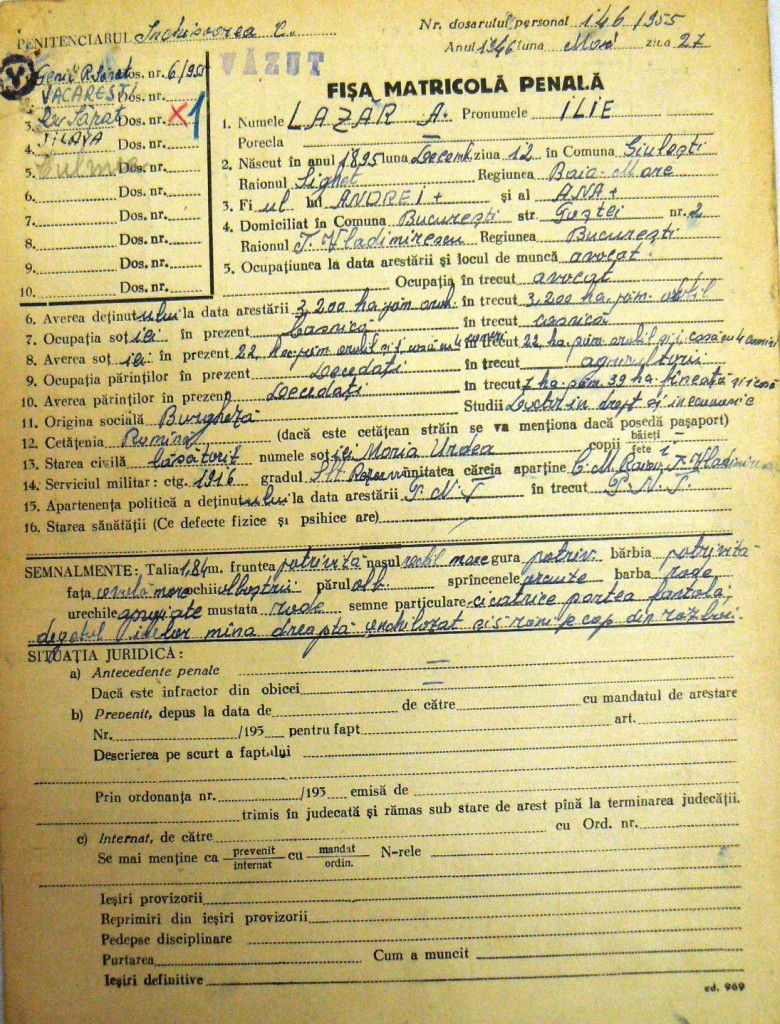 PENITENCIARUL Inchisoarea
Nr. dosarului personal 146/1955
Anul 1946 luna ziua 27
VĂZUT
V
R. Sărat Dos. nr. 6/195
VACAREȘTI Dos. nr.
3. Rm Sărat Dos. nr. X1
4. JILAVA Dos. nr.
5. Culmea Dos. nr.
6. Dos. nr.
7. Dos. nr.
8. Dos. nr.
9. Dos. nr.
10. Dos. nr.
FIȘA MATRICOLĂ PENALĂ
1. Numele LAZĂR A. Pronumele ILIE
Porecla —
2. Născut în anul 1895 luna Decemb. ziua 12 în Comuna Giulești
Raionul Sighet Regiunea Baia-Mare
3. Fi ul lui ANDREI + și al ANA +
4. Domiciliat în Comuna București str. nr. 2
Raionul T. Vladimirescu Regiunea București
5. Ocupațiunea la data arestării și locul de muncă avocat.
Ocupația în trecut avocat
6. Averea deținutului la data arestării 3,200 ha păm. arab. în trecut 3,200 ha păm. arabil
7. Ocupația soției în prezent casnică în trecut casnică
8. Averea soției în prezent 22 ha păm arabil și 1 casă cu 4 camere în trecut 22 ha păm arabil și 1 casă cu 4 camere
9. Ocupația părinților în prezent Decedați în trecut agricultori
10. Averea părinților în prezent Decedați în trecut 7 ha păm 39 ha fineață și 1 casă
11. Origina socială Burgheză Studii Doctor in drept și in economie
12. Cetățenia Romină (dacă este cetățean străin se va menționa dacă posedă pașaport)
13. Starea civilă căsătorit numele soției Maria Urdea copii băieți fete 1
14. Serviciul militar: ctg. 1916 gradul Slt Rezervă unitatea căreia aparține C. M. Raion T. Vladimir
15. Apartenența politică a deținutului la data arestării P. N. Ț în trecut P. N. Ț.
16. Starea sănătății (Ce defecte fizice și psihice are)
SEMNALMENTE: Talia 1,84 m. fruntea potrivită nasul rectil mare gura potriv. bărbia potrivită
fața ovală mare ochii albaștrii părul alb sprîncenele arcuite barba rade
urechile mustata rade semne particulare cicatrice partea
degetul inelar mîna dreaptă anchilozat și s răni pe cap din război.
SITUAȚIA JURIDICĂ:
a) Antecedente penale —
Dacă este infractor din obicei —
b) Prevenit, depus la data de de către cu mandatul de arestare
Nr. /195 pentru fapt art.
Descrierea pe scurt a faptului
Prin ordonanța nr. /195 emisă de
trimis în judecată și rămas sub stare de arest pînă la terminarea judecății.
c) Internat, de către cu Ord. nr.
Se mai menține ca prevenit internat cu mandat ordin. N-rele
Ieșiri provizorii
Reprimiri din ieșiri provizorii
Pedepse disciplinare
Purtarea Cum a muncit
Ieșiri definitive
ed. 969